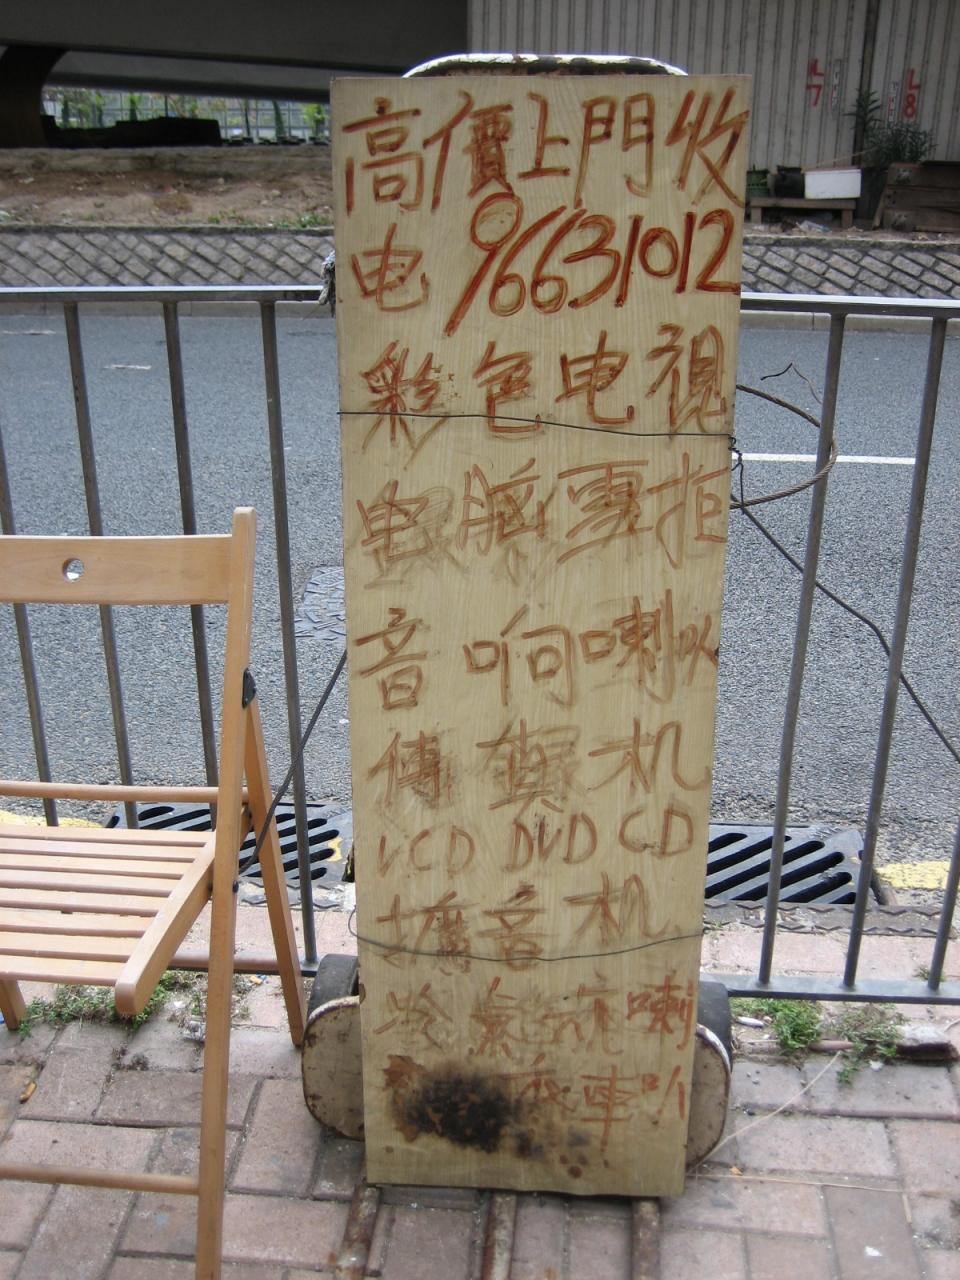 高價上門收
电 96631012
彩色电視
电腦專拒
音响喇叭
傳真机
VCD DVD CD
擴音机
冷氣 喇
車叭
L7
L8